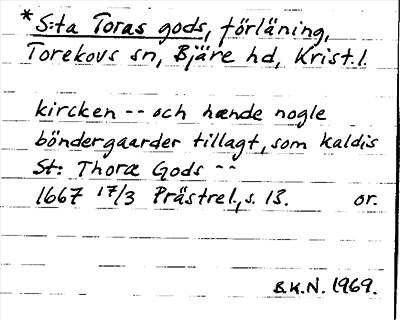 * S:ta Toras gods, förläning,
Torekovs sn, Bjäre hd, Krist.l.
kircken -- och hænde nogle
böndergaarder tillagt, som kaldis
St: Thoræ Gods --
1667 17/3 Prästrel., s. 13. or.
B.K.N. 1969.